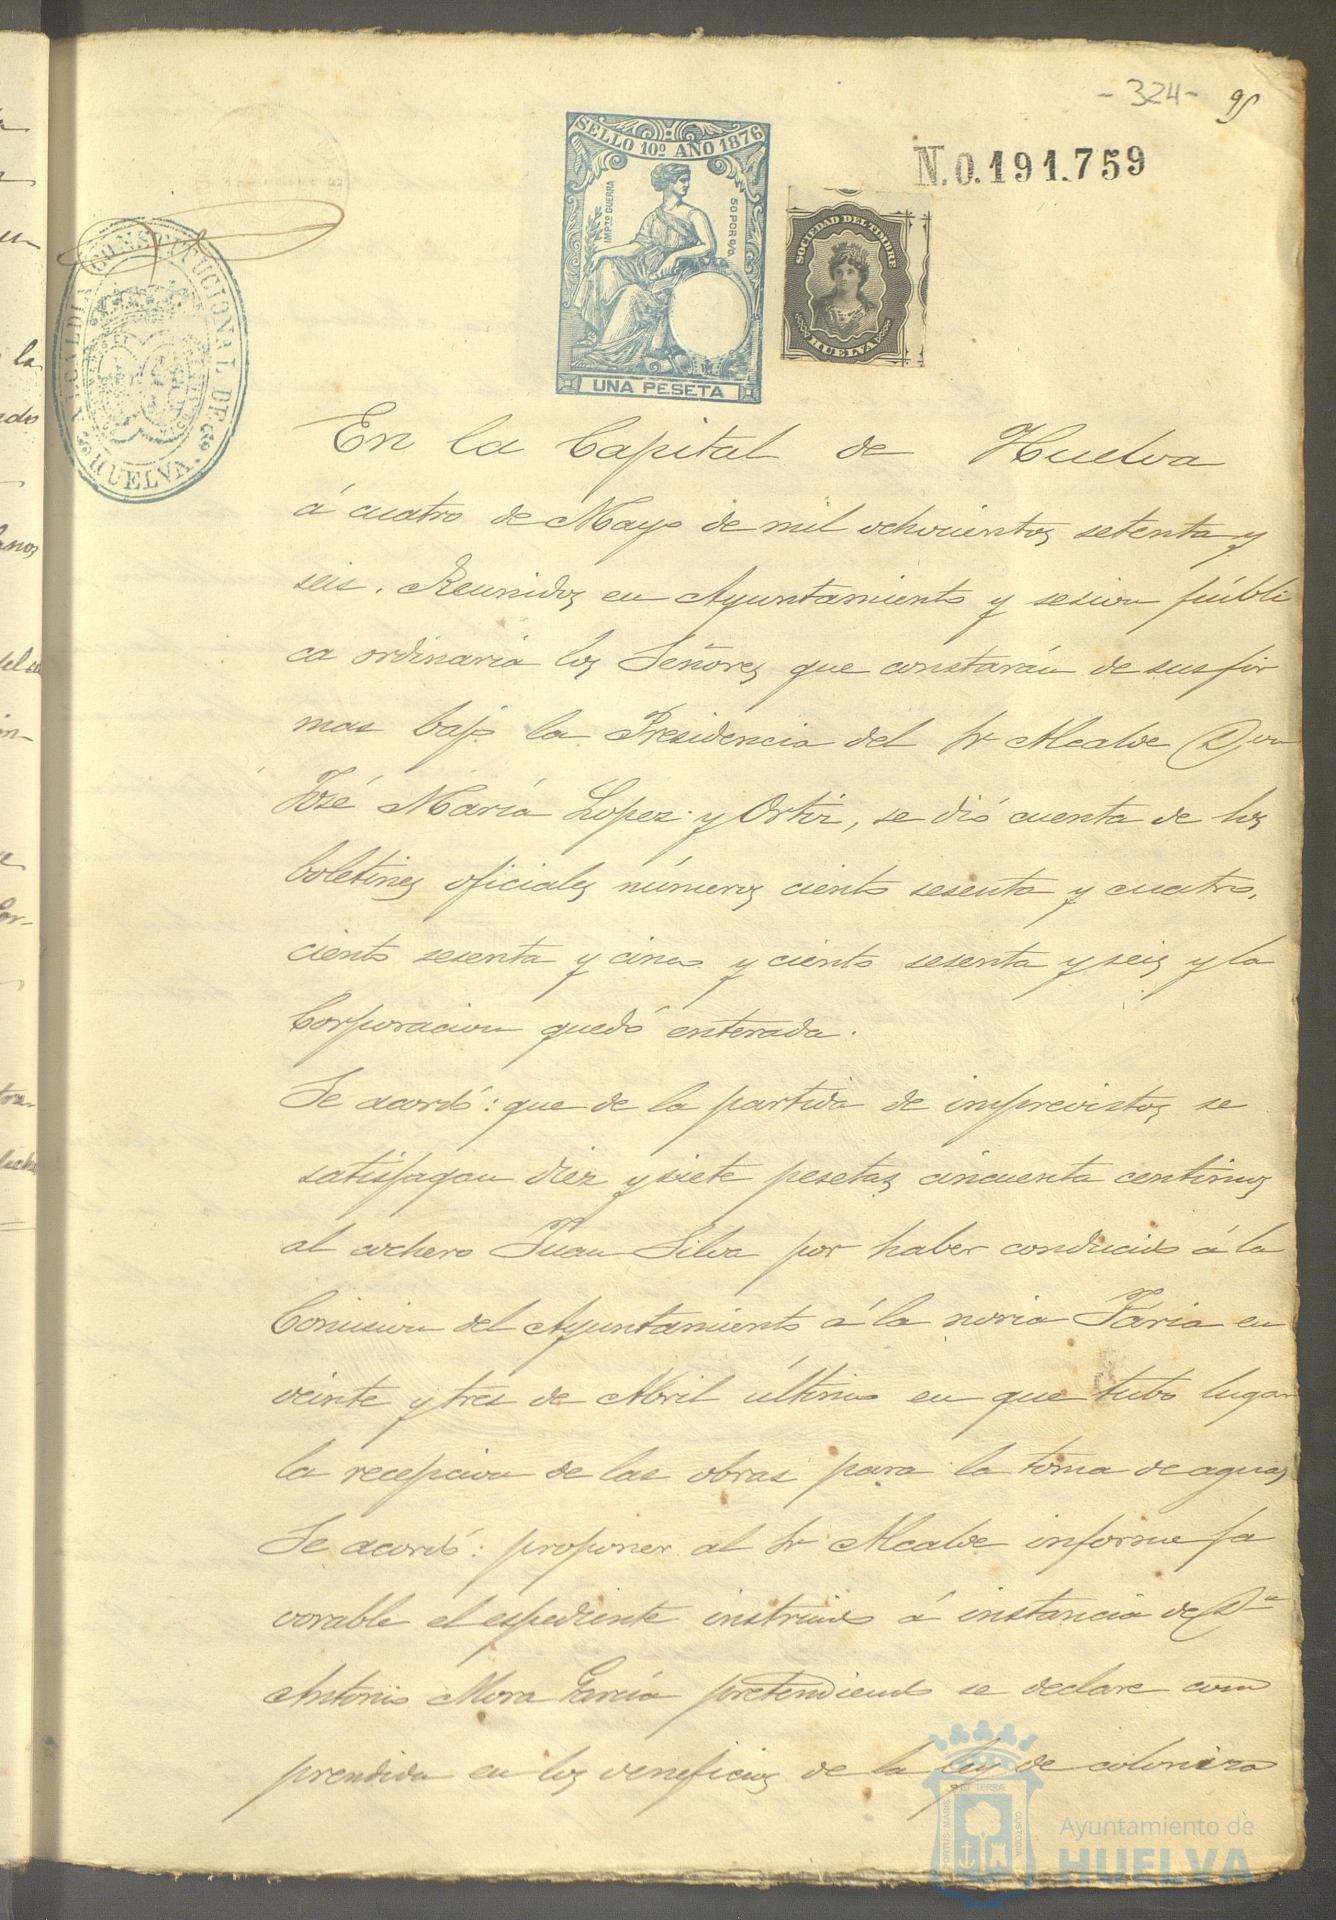 - 324 -
95
SELLO 10º AÑO 1876
IMPTO GUERRA
50 POR 0/0
UNA PESETA
SOCIEDAD DEL TIMBRE
HUELVA
N.0.191.759
ALCALDIA CONSTITUCIONAL DE
HUELVA.
En la Capital de Huelva
á cuatro de Mayo de mil ochocientos setenta y
seis. Reunidos en Ayuntamiento y sesion públi
ca ordinaria los Señores que constarán de sus fir
mas bajo la Presidencia del Sr Alcalde Don
José María Lopez y Ortiz, se dió cuenta de los
boletines oficiales números ciento sesenta y cuatro,
ciento sesenta y cinco y ciento sesenta y seis y la
Corporacion quedó enterada.
Se acordó: que de la partida de imprevistos se
satisfagan diez y siete pesetas cincuenta centimos
al cochero Juan Silva por haber conducido á la
Comision del Ayuntamiento á la noria Fária en
veinte y tres de Abril último en que tubo lugar
la recepcion de las obras para la toma de aguas
Se acordó: proponer al Sr Alcalde informe fa
vorable el espediente instruido á instancia de Dª
Antonio Mora García pretendiendo se declare com
prendida en los veneficios de la ley de coloniza
PORTUS MARIS ET TERRAE CUSTODIA
Ayuntamiento de
HUELVA